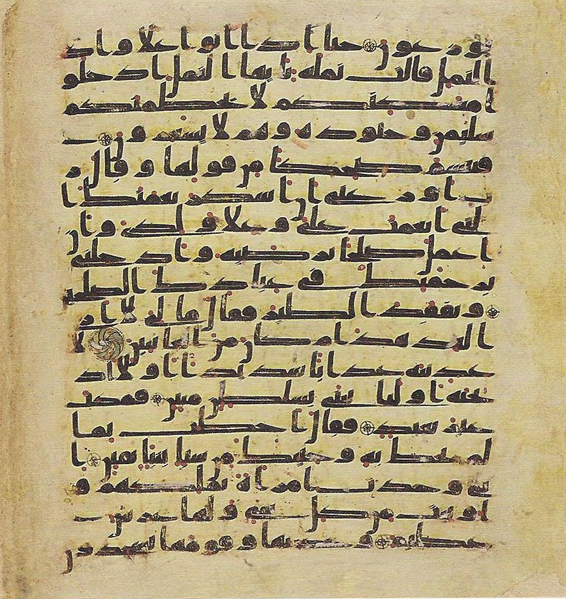 يوزعون حتى اذا اتوا علا واد
النمل قالت نملة يايها النمل ادخلو
ا مسكنكم لا يحطمنكم
سليمن وجنوده وهم لا يشعرون
فتبسم ضحكا من قولها وقال ر
ب اوزعني ان اشكر نعمتك ا
لتي انعمت علي وعلا ولدي وان
اعمل صلحا ترضيه وادخلني
برحمتك في عبادك الصلحين
وتفقد الطير فقال ما لي لا ارى
الهدهد ام كان من الغائبين لا
عذبنه عذابا شديدا او لا اذ
بحنه او لياتيني بسلطن مبين فمكث
غير بعيد فقال احطت بما
لم تحط به وجئتك من سبا بنبا يقين ا
ني وجدت امراة تملكهم و
اوتيت من كل شي ولها عرش
عظيم وجدتها وقومها يسجدون